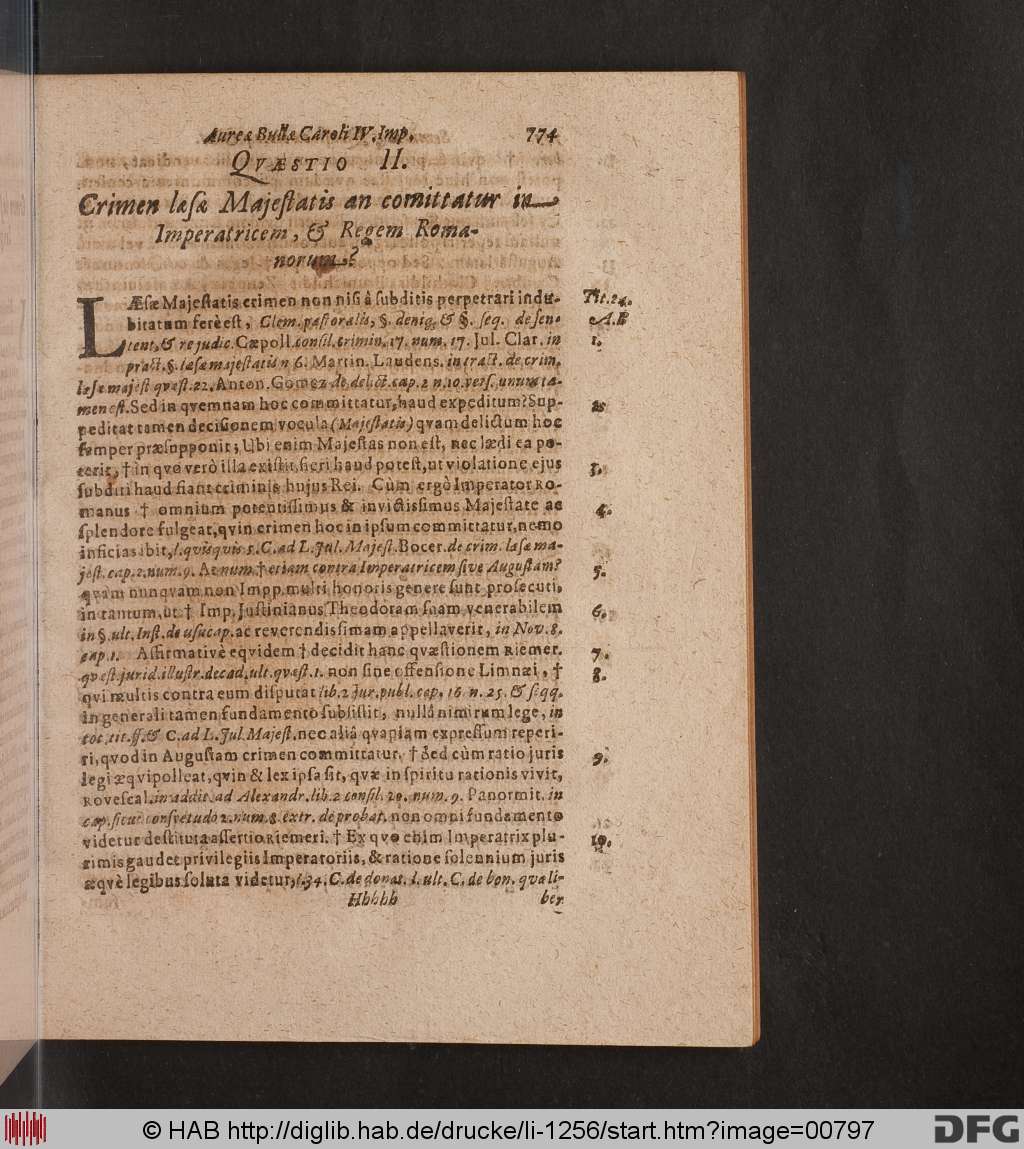 Aureæ Bullæ Caroli IV. Imp. 774
QVÆSTIO II.
Crimen læsæ Majestatis an comittatur in
Imperatricem, & Regem Roma-
norum?
LÆsæ Majestatis crimen non nisi â subditis perpetrari indu- Tit. 24.
bitatum ferè est, Clem. pastoralis, §. deniq, & §. seq. de sen- A. B
tent, & re judic. Cæpoll. consil. crimin. 17. num. 17. Jul. Clar. in 1.
pract. §. læsæ majestatis n 6. Martin. Laudens. in tract. de crim.
læsæ majest quæst. 22. Anton. Gomez de delict. cap. 2 n. 10. vers. unum ta-
men est. Sed in qvemnam hoc committatur, haud expeditum? Sup- 2.
peditat tamen decisionem vocula (Majestatis) qvam delictum hoc
semper præsupponit; Ubi enim Majestas non est, nec lædi ea po-
terit, † in qvo verò illa existit, fieri haud potest, ut violatione ejus 3.
subditi haud fiant criminis hujus Rei. Cùm ergò Imperator Ro-
manus † omnium potentissimus & invictissimus Majestate ac 4.
splendore fulgeat, qvin crimen hoc in ipsum committatur, nemo
inficias ibit, l. qvisqvis 5. C. ad L. Jul. Majest. Bocer. de crim. læsæ ma-
jest. cap. 2. num. 9. At num † etiam contra Imperatricem sive Augustam? 5.
qvam nunqvam non Impp. multi honoris genere sunt prosecuti,
in tantum, ut † Imp. Justinianus Theodoram suam venerabilem 6.
in §. ult. Inst. de usucap. ac reverendissimam appellaverit, in Nov. 8.
cap. 1. Affirmativè eqvidem † decidit hanc qvæstionem Riemer. 7.
qvæst. jurid. illustr. decad. ult. qvæst. 1. non sine offensione Limnæi, † 8.
qvi multis contra eum disputat lib. 2 Jur. publ. cap. 16 n. 25. & seqq.
in generali tamen fundamento subsistit, nullâ nimirum lege, in
tot. tit. ff. & C. ad L. Jul Majest. nec aliâ qvapiam expressum reperi-
ri, qvod in Augustam crimen committatur. † Sed cùm ratio juris 9.
legi æqvipolleat, qvin & lex ipsa sit, qvæ in spiritu rationis vivit,
Rovescal. in addit. ad Alexandr. lib. 2 consil. 29. num. 9. Panormit. in
cap. sicut consvetudo 2. num. 8. extr. de probat. non omni fundamento
videtur destituta assertio Riemeri. † Ex qvo enim Imperatrix plu- 10.
rimis gaudet privilegiis Imperatoriis, & ratione solennium juris
æqvè legibus soluta videtur, l. 34. C. de donat. l. ult. C. de bon. qvæ li-
Hhhhh ber
© HAB http://diglib.hab.de/drucke/li-1256/start.htm?image=00797
DFG